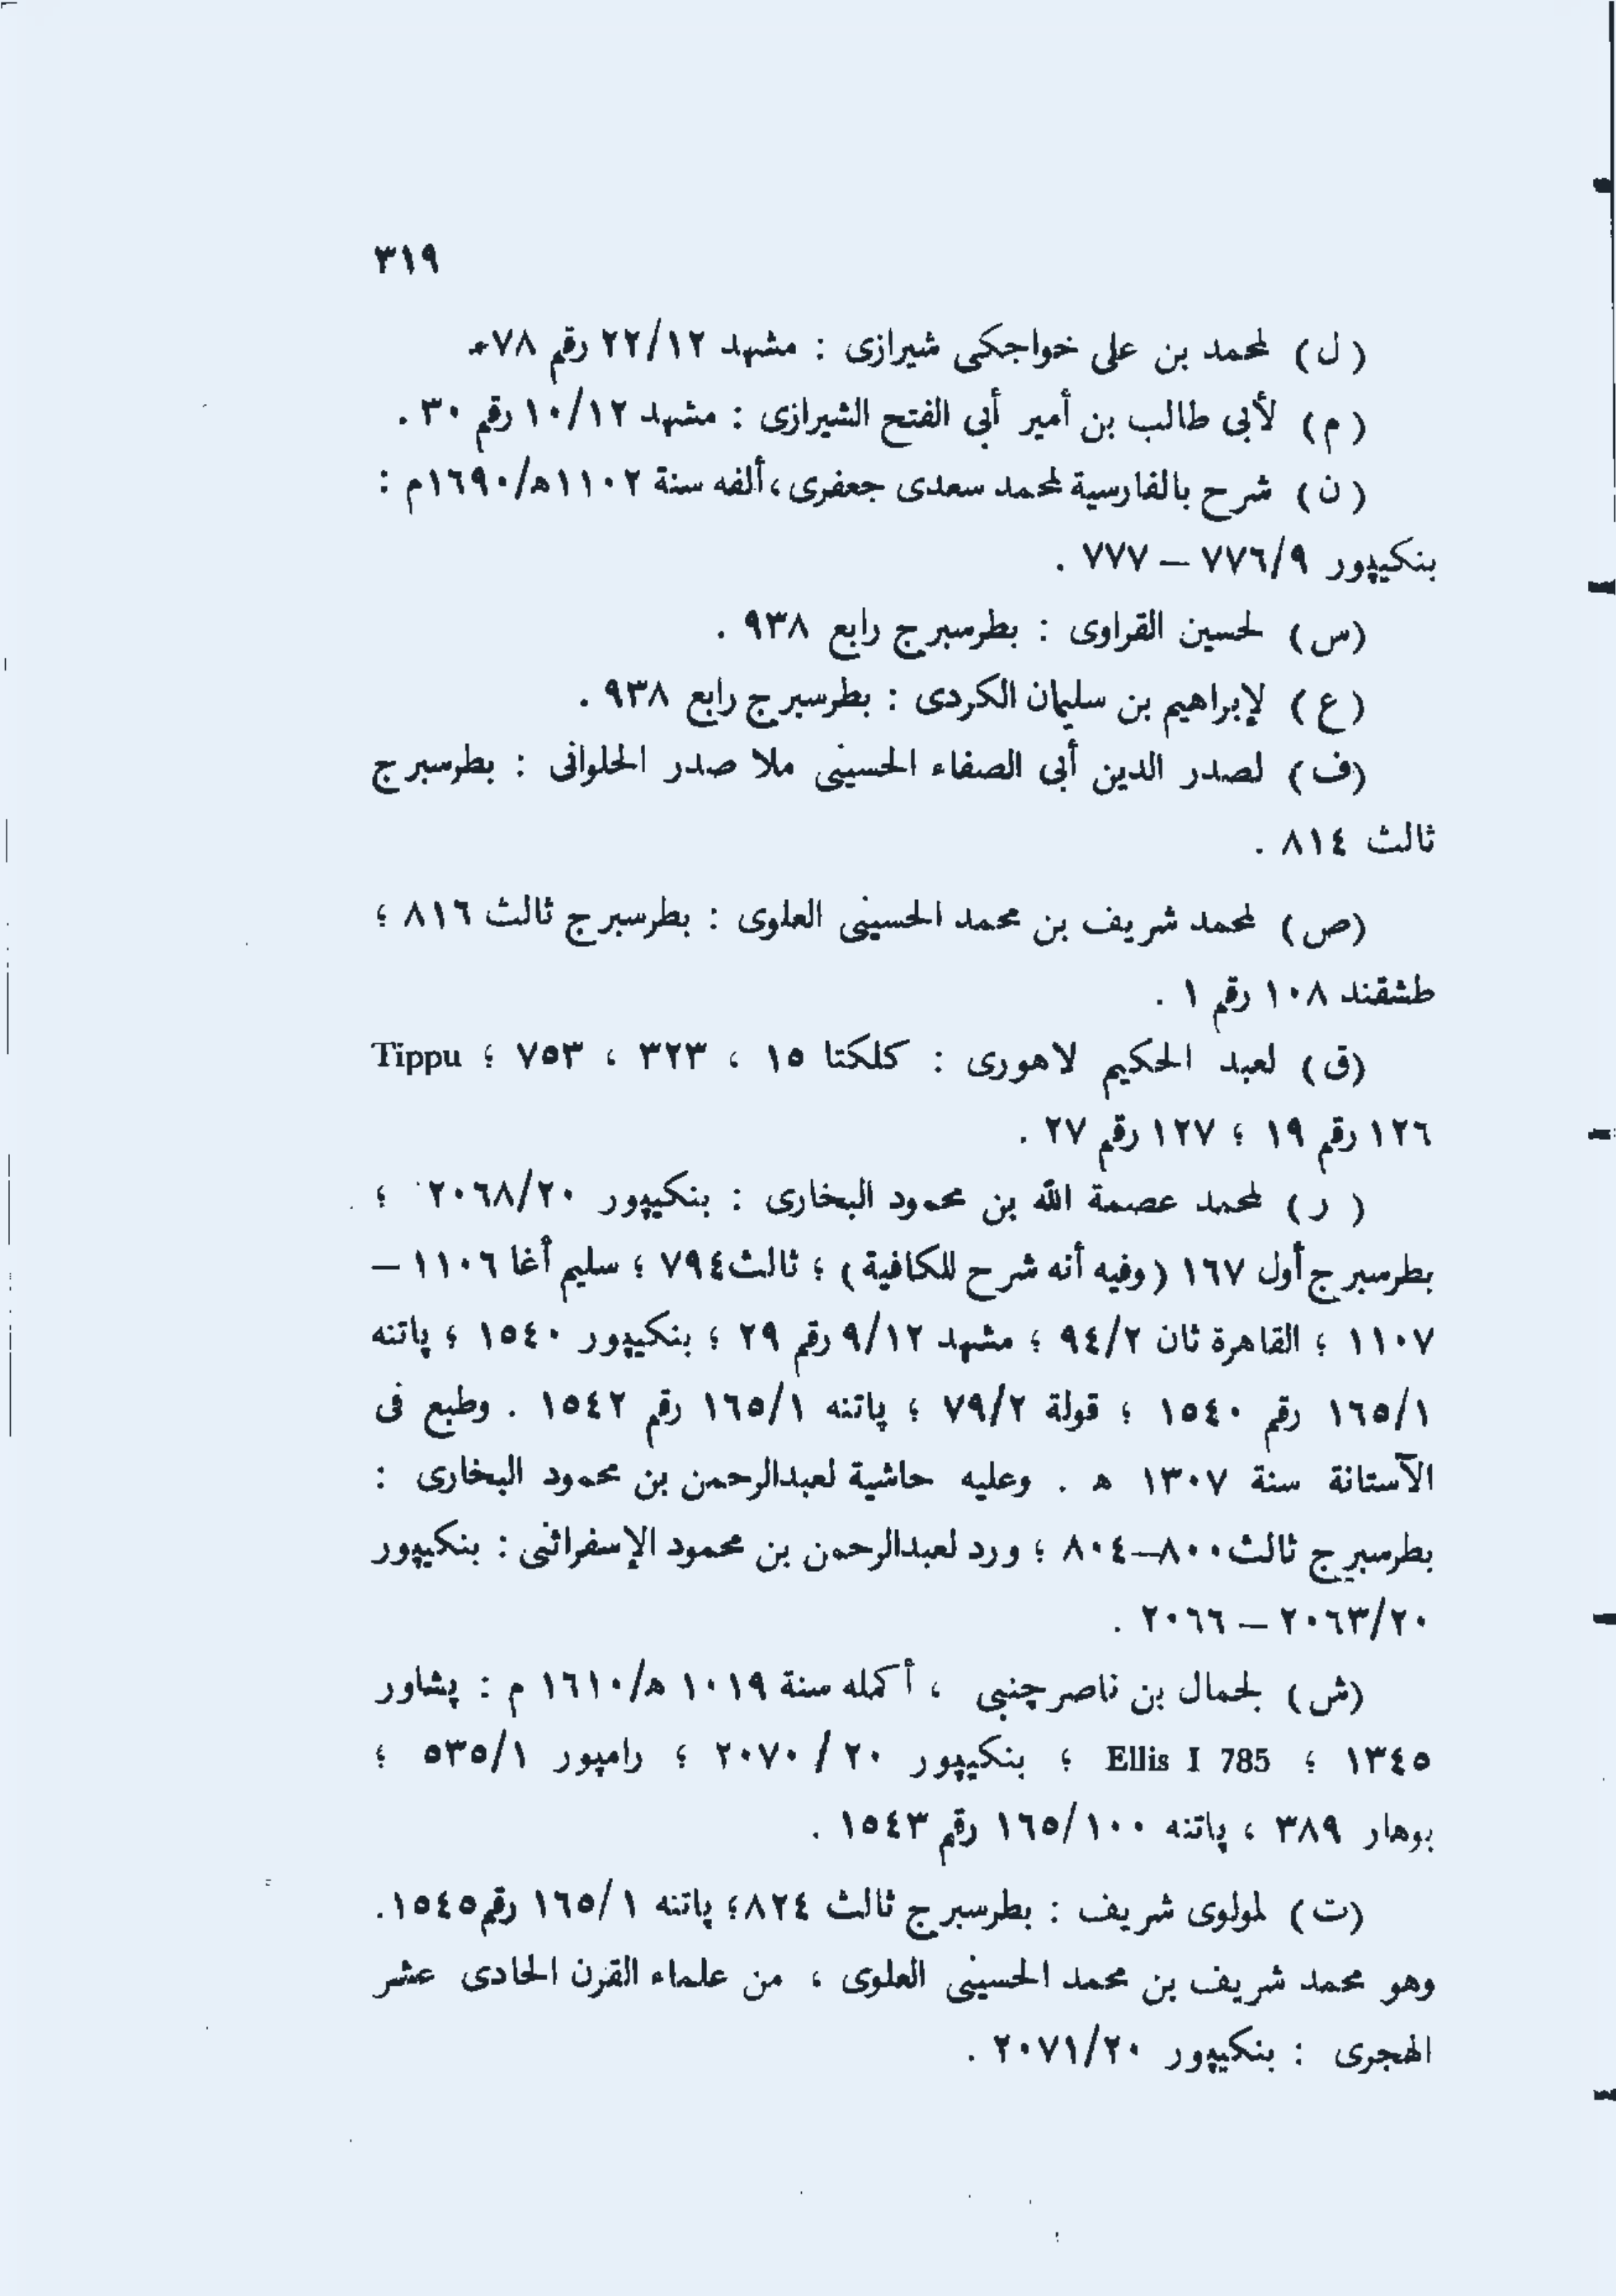 ٣١٩
( ل ) لمحمد بن على خواجكى شيرازى : مشهد ٢٢/١٢ رقم ٧٨
( م ) لأبى طالب بن أمير أبى الفتح الشيرازى : مشهد ١٠/١٢ رقم ٣٠ .
( ن ) شرح بالفارسية لمحمد سعدى جعفرى ، ألفه سنة ١١٠٢هـ/١٦٩٠م :
بنكيپور ٧٧٦/٩ – ٧٧٧ .
(س) لحسين القراوى : بطرسبرج رابع ٩٣٨ .
(ع) لإبراهيم بن سليمان الكردى : بطرسبرج رابع ٩٣٨ .
(ف) لصدر الدين أبى الصفاء الحسينى ملا صدر الحلوانى : بطرسبرج
ثالث ٨١٤ .
(ص) لمحمد شريف بن محمد الحسينى العلوى : بطرسبرج ثالث ٨١٦ ؛
طشقند ١٠٨ رقم ١ .
(ق) لعبد الحكيم لاهورى : كلكتا ١٥ ، ٣٢٣ ، ٧٥٣ ؛ Tippu
١٢٦ رقم ١٩ ؛ ١٢٧ رقم ٢٧ .
( ر ) لمحمد عصمة الله بن محمود البخارى : بنكيپور ٢٠٦٨/٢٠ ؛
بطرسبرج أول ١٦٧ (وفيه أنه شرح للكافية) ؛ ثالث ٧٩٤ ؛ سليم أغا ١١٠٦ –
١١٠٧ ؛ القاهرة ثان ٩٤/٢ ؛ مشهد ٩/١٢ رقم ٢٩ ؛ بنكيپور ١٥٤٠ ؛ پاتنه
١٦٥/١ رقم ١٥٤٠ ؛ قولة ٧٩/٢ ؛ پاتنه ١٦٥/١ رقم ١٥٤٢ . وطبع فى
الآستانة سنة ١٣٠٧ هـ . وعليه حاشية لعبدالرحمن بن محمود البخارى :
بطرسبرج ثالث ٨٠٠–٨٠٤ ؛ ورد لعبدالرحمن بن محمود الإسفرائنى : بنكيپور
٢٠٦٣/٢٠ – ٢٠٦٦ .
(ش) لجمال بن ناصر چنبى ، أكمله سنة ١٠١٩ هـ/١٦١٠ م : پشاور
١٣٤٥ ؛ Ellis I 785 ؛ بنكيپور ٢٠٧٠/٢٠ ؛ رامپور ٥٣٥/١ ؛
بوهار ٣٨٩ ، پاتنه ١٦٥/١٠٠ رقم ١٥٤٣ .
(ت) لمولوى شريف : بطرسبرج ثالث ٨٢٤ ؛ پاتنه ١٦٥/١ رقم ١٥٤٥ .
وهو محمد شريف بن محمد الحسينى العلوى ، من علماء القرن الحادى عشر
الهجرى : بنكيپور ٢٠٧١/٢٠ .